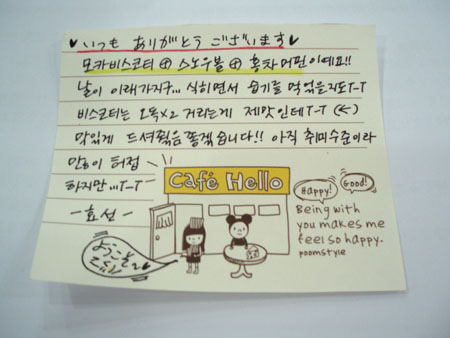 ♥ いつも ありがとう ございます ♥
모카비스코티 ⊕ 스노우볼 ⊕ 홍차머핀이예요!!
날이 이래가지구... 식히면서 습기를 먹었을지도T-T
비스코티는 오독x2 거리는게 제맛인데T-T (←)
맛있게 드셔줬음 좋겠습니다!! 아직 취미수준이라
많이 허접
하지만...T-T
-효선-
Café Hello
Happy!
Good!
Being with
you makes me
feel so happy.
poomstyle
ようこそ